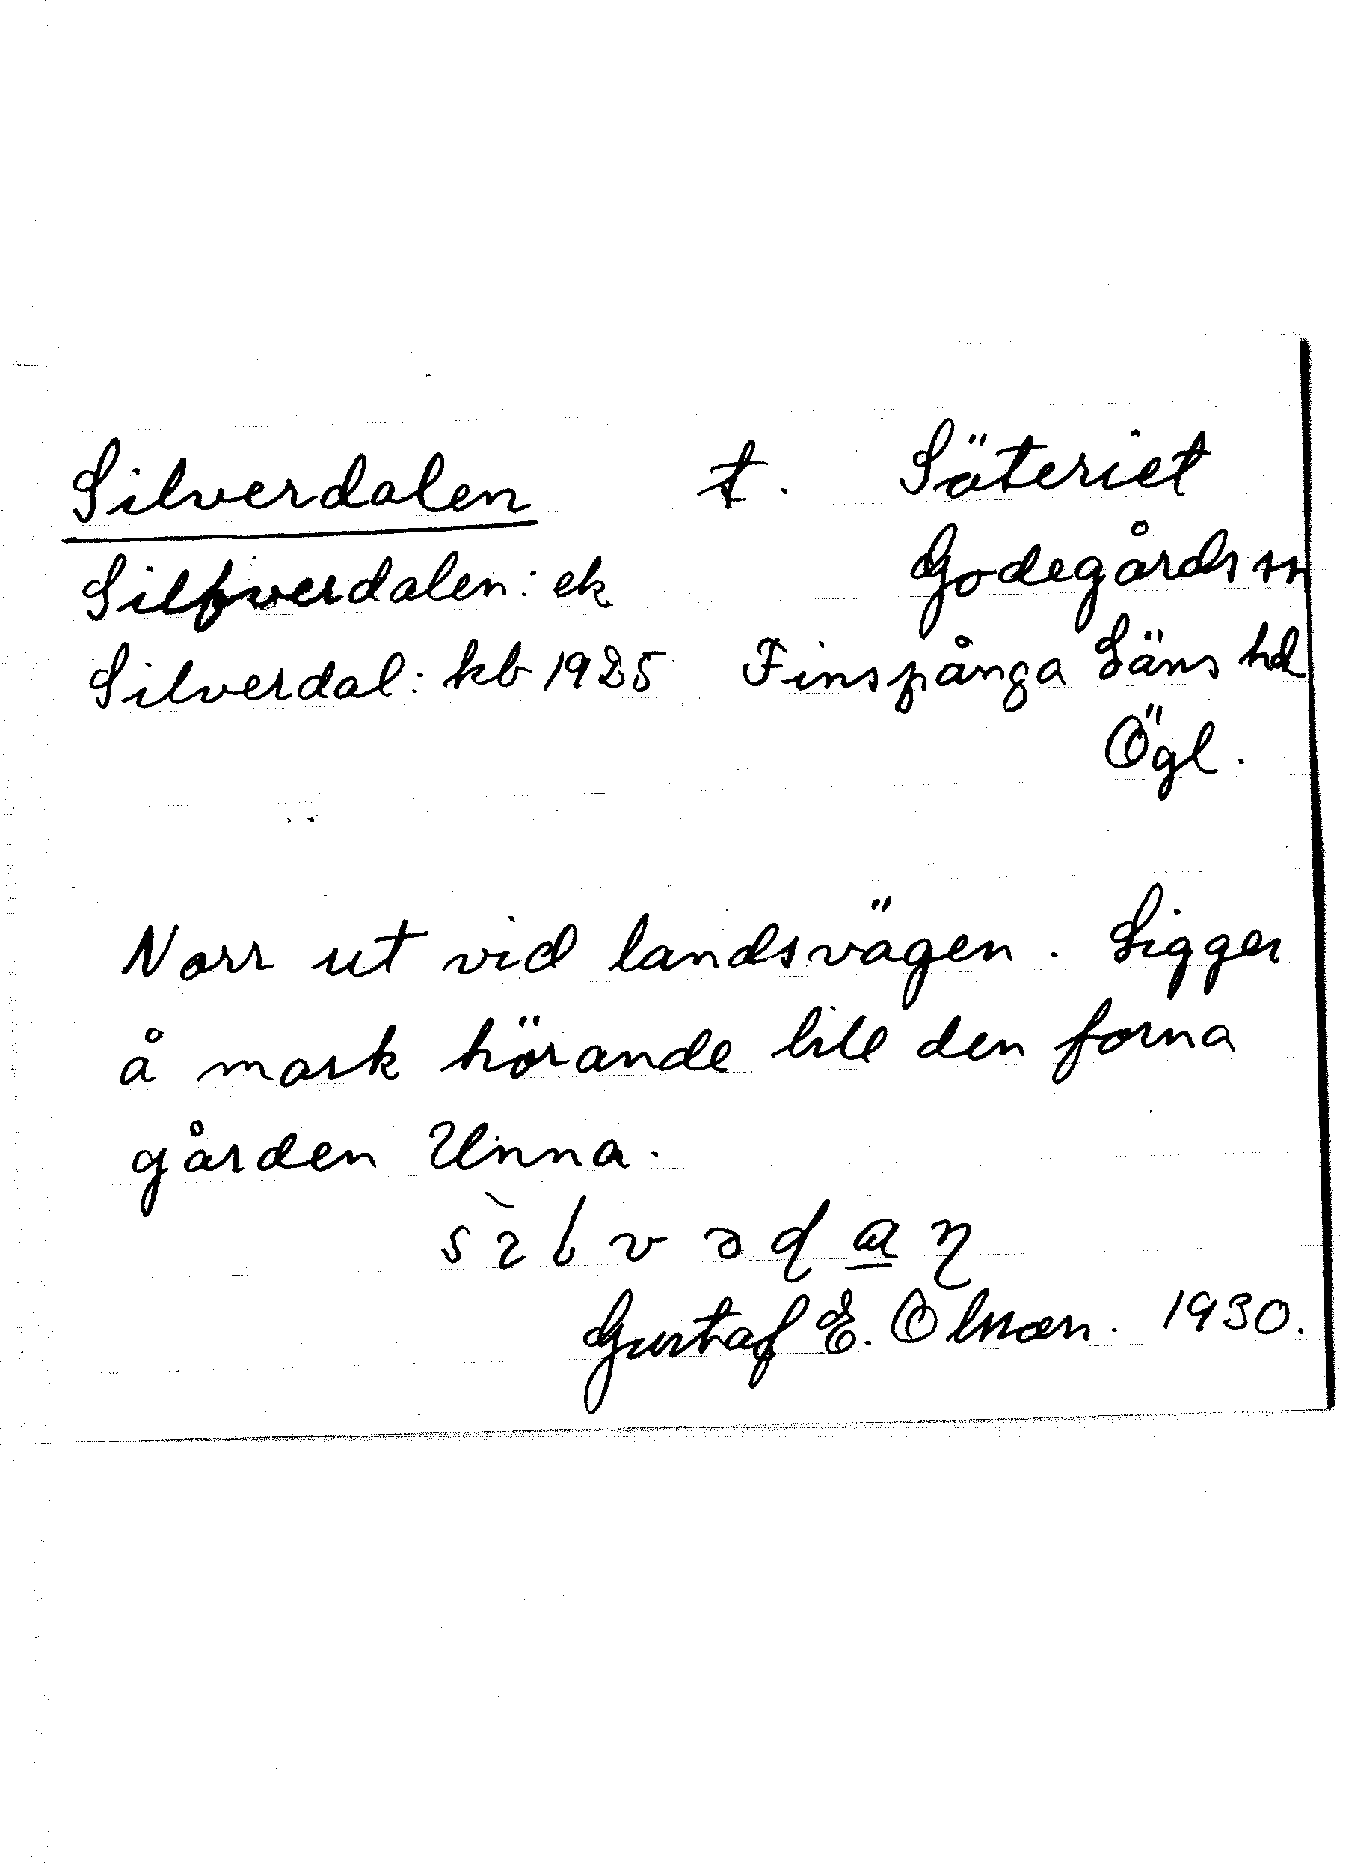 Silverdalen t. Säteriet
Silfverdalen: ek Godegårds sn
Silverdal: kb 1925 Finspånga Läns hd
Ögl.
Norr ut vid landsvägen. Ligger
å mark hörande till den forna
gården Unna.
Gustaf E. Olsson. 1930.